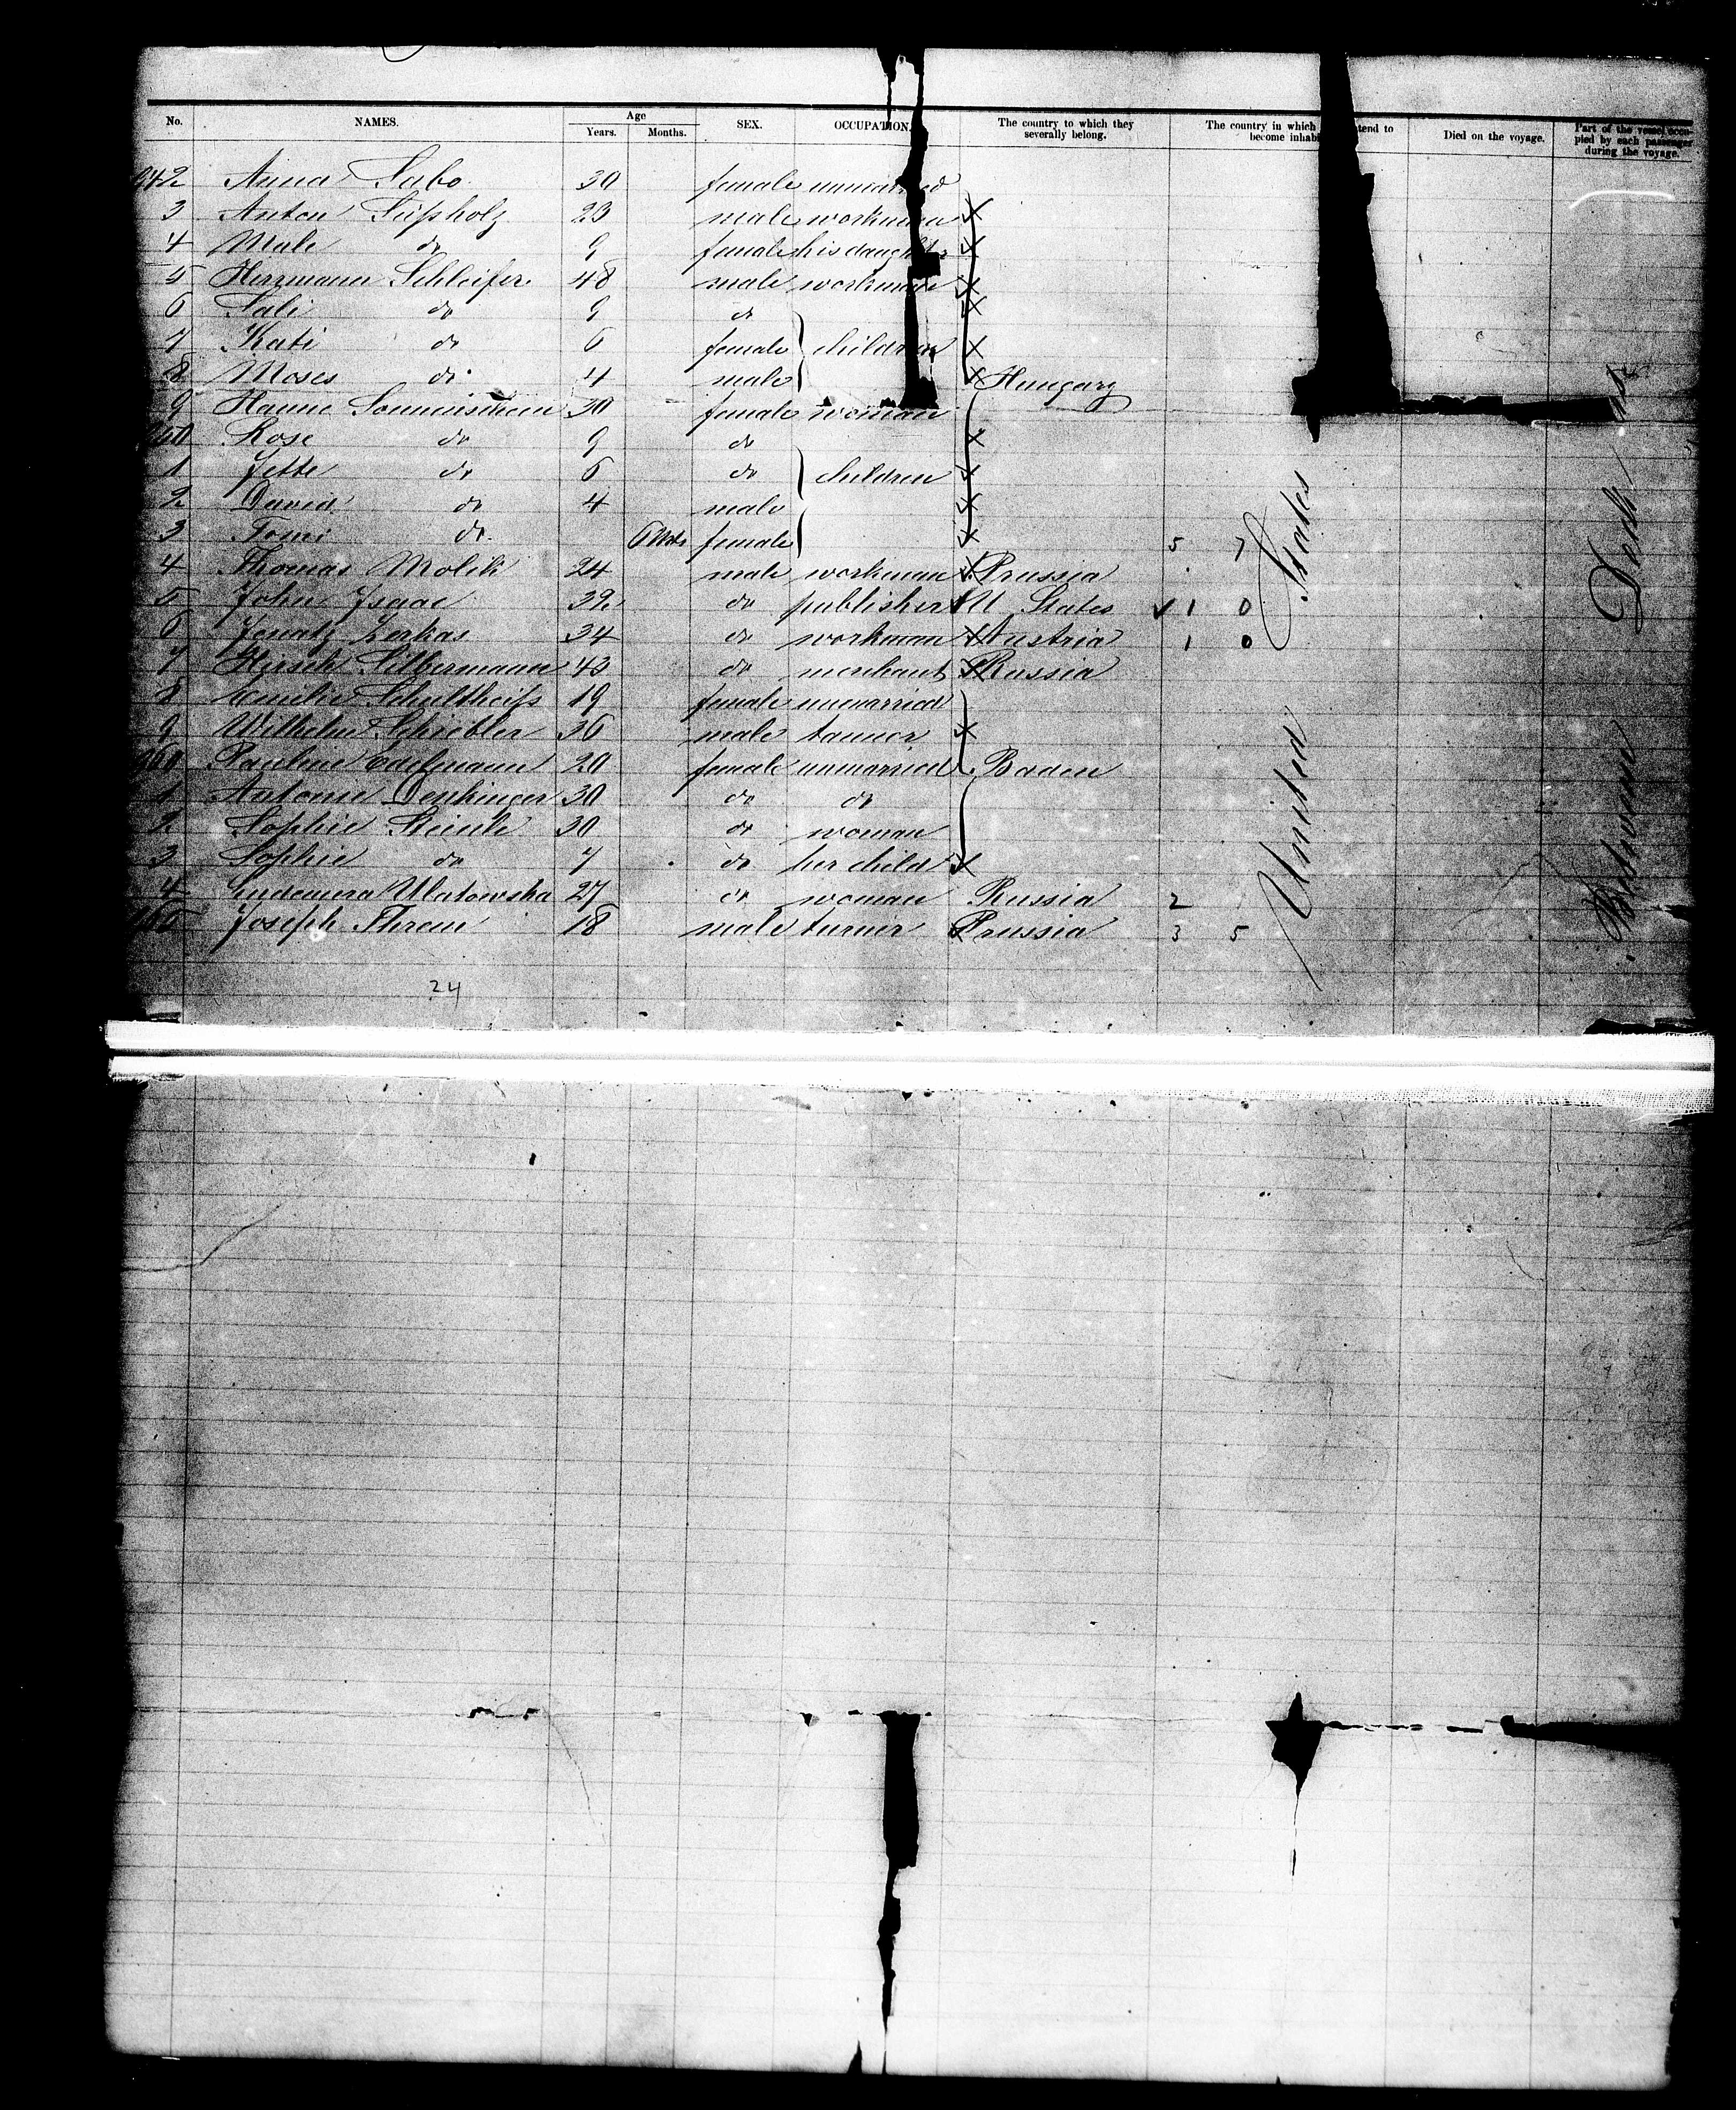 No. NAMES. Age Years. Months. SEX. OCCUPATION. The country to which they severally belong. The country in which tend to become inhabi Died on the voyage. Part of the vessel occupied by each passenger during the voyage.
242 Anna Sabo 30 female unmarried
3 Anton Süßholz 23 male workman
4 Male do 9 female his daughter
5 Herrmann Schleifer 48 male workman
6 Sali do 9 do
7 Kati do 6 female children
8 Moses do 4 male Hungary
9 Hanne Sonnenschein 30 female woman
Rose do 9 do
1 Jette do 6 do children
2 David do 4 male
3 Tomi do 6 Mts female 5 7
4 Thomas Molik 24 male workman Prussia
5 John Isaac 32 do publisher U States 1 0
6 Ignatz 34 do workman Austria 1 0
7 Hirsch Silbermann 43 do merchant Russia
8 Emilie Schultheiß 19 female unmarried
9 Wilhelm Schiebler 36 male tanner
Pauline Edelmann 20 female unmarried Baden
1 Antonie Denkinger 30 do do
2 Sophie Steinle 30 do woman
3 Sophie do 7 do her child
4 Ulatowska 27 do woman Russia 2
Joseph Threm 18 male turner Prussia 3 5
United States
Between Deck
24